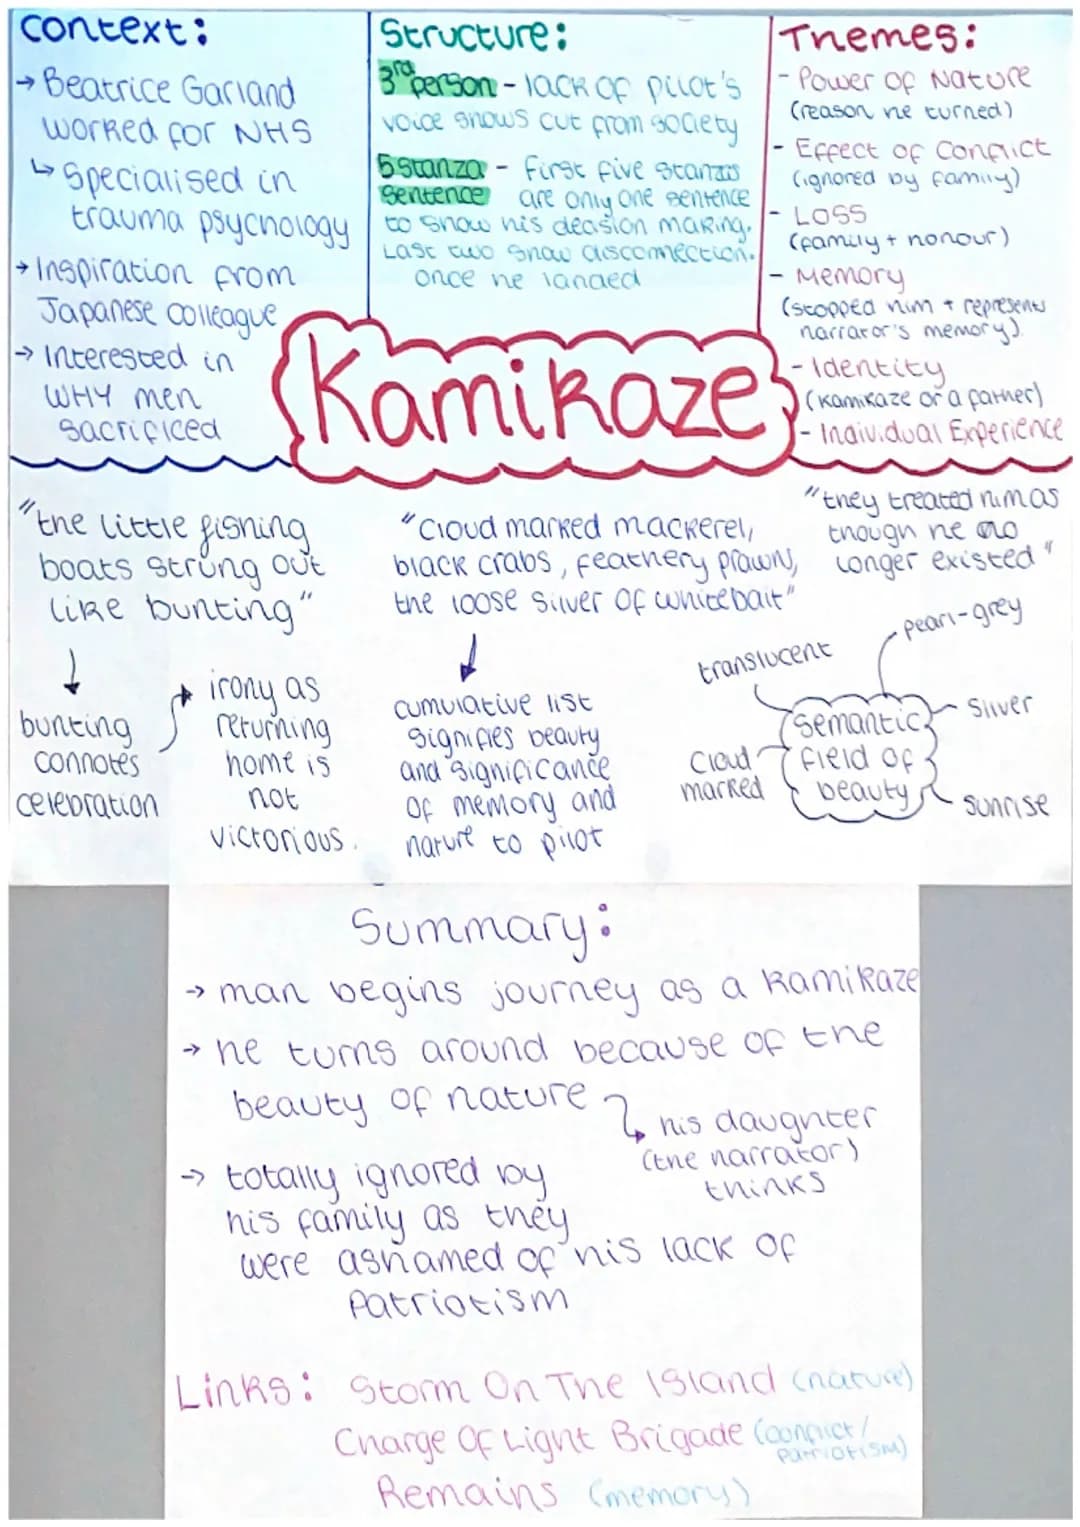 Context:
→ Beatrice Garland
worked for NHS
↳ Specialised in
trauma psychology
→ Inspiration from
Japanese colleague
→ Interested in
WHY men
sacrificed
Structure:
3rd person - lack of pilot's
voice shows cut from society
5 stanza - First five stanzas
sentence are only one sentence
to show his decision making.
Last two show disconnection.
once he landed
Themes:
- Power of Nature
(reason he turned)
- Effect of Conflict
(ignored by family)
- Loss
(family + honour)
- Memory
(stopped him + represents
narrator's memory)
- Identity
(kamikaze or a father)
- Individual Experience
Kamikaze
"the little fishing
boats strung out
like bunting"
bunting
connotes
celebration
irony as
returning
home is
not
victorious.
"cloud marked mackerel,
black crabs, feathery prawns,
the loose silver of whitebait"
cumulative list
signifies beauty
and significance
of memory and
nature to pilot
"they treated him as
though he no
longer existed"
translucent
pearl-grey
Silver
Semantic
field of
beauty
Cloud
marked
Sunrise
Summary:
→ man begins journey as a kamikaze
→ he turns around because of the
beauty of nature
his daughter
(the narrator)
thinks
→ totally ignored by
his family as they
were ashamed of his lack of
Patriotism
Links: Storm On The Island (nature)
Charge Of Light Brigade (conflict/
patriotism)
Remains (memory)